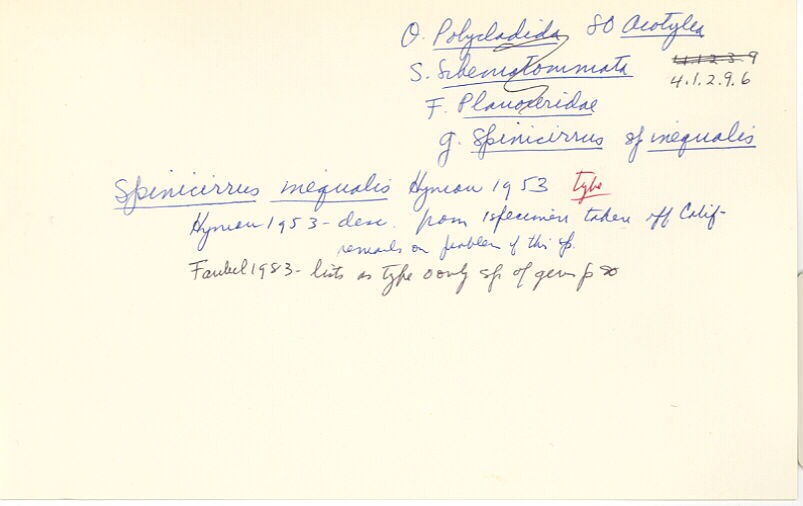 O. Polycladida SO Acotylea
S. Schematommata 4.1.2.3.9
4.1.2.9.6
F. Planoceridae
g. Spinicirrus sp inequalis
Spinicirrus inequalis Hyman 1953 type
Hyman 1953 - desc. from 1 specimen taken off Calif -
remarks on problem of this sp.
Faubel 1983 - lists as type & only sp. of genus p 20